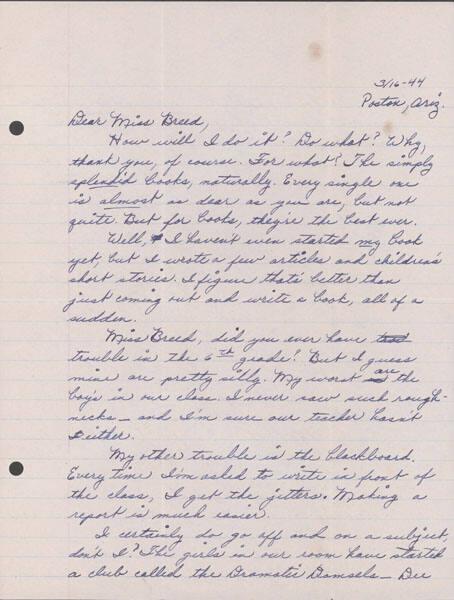 3/16-44
Poston, Ariz.
Dear Miss Breed,
How will I do it? Do what? Why,
thank you, of course. For what? The simply
splendid books, naturally. Every single one
is almost as dear as you are, but not
quite. But for books, they're the best ever.
Well, I haven't even started my book
yet, but I wrote a few articles and children's
short stories. I figure that's better than
just coming out and write a book, all of a
sudden.
Miss Breed, did you ever have
trouble in the 6th grade? But I guess
mine are pretty silly. My worst are the
boys in our class. I never saw such rough-
necks — and I'm sure our teacher hasn't
either.
My other trouble is the blackboard.
Every time I'm asked to write in front of
the class, I get the jitters. Making a
report is much easier.
I certainly do go off and on a subject,
don't I? The girls in our room have started
a club called the Dramatic Damsels — Dee